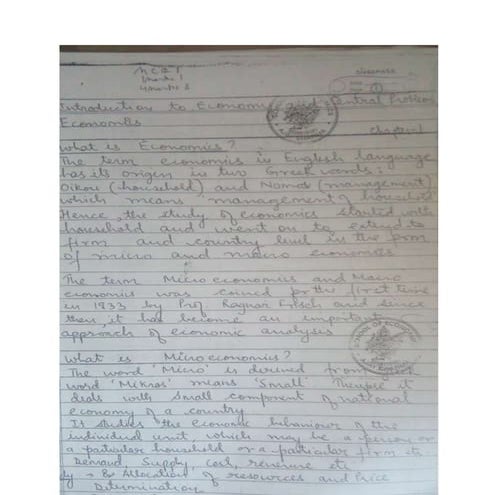 Introduction to Economics and Central Problem
Economics
chapter 1
What is Economics?
The term economics in English language
has its origin in two Greek words:
Oikou (household) and Nomos (management)
which means management of household
Hence, the study of economics started with
household and went on to extend to
firm and country level in the form
of micro and macro economics
The term Micro economics and Macro
economics was coined for the first time
in 1933 by Prof Ragnar Frisch and since
then it has become an important
approach of economic analyses
What is Microeconomics?
The word 'Micro' is derived from
word 'Mikros' means 'Small'. it
deals with Small component of national
economy of a country
It studies the economic behaviour of the
individual unit which may be a person or
a particular household or a particular firm etc
Demand Supply, cost, revenue etc
Allocation of resources and Price
Determination